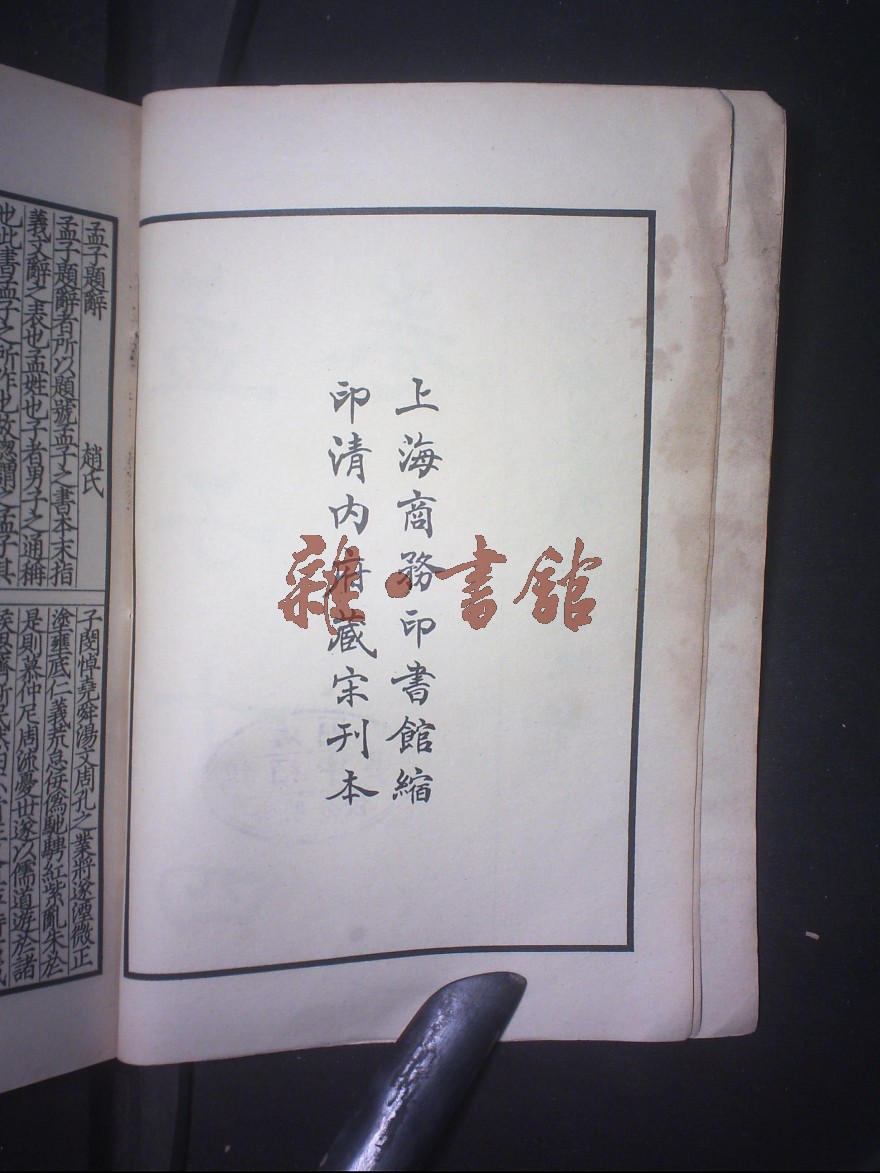 上海商務印書館縮
印清内府藏宋刊本
雜·書館
孟子題辭 趙氏
孟子題辭者所以題號孟子之書本末指
義文辭之表也孟姓也子者男子之通稱
也此書孟子之所作也故總謂之孟子其
子閔悼堯舜湯文周孔之業將遂湮微正
塗壅底仁義荒怠佞僞馳騁紅紫亂朱於
是則慕仲尼周流憂世遂以儒道遊於諸